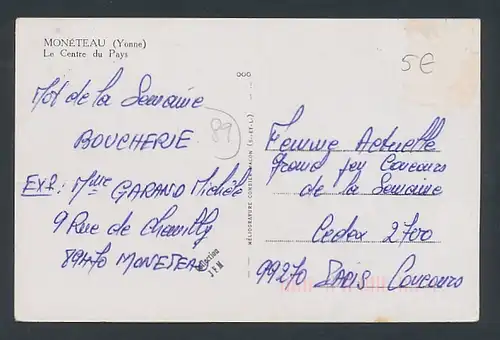 MONÉTEAU (Yonne)
Le Centre du Pays
5€
Mot de la Semaine
BOUCHERIE
89
EXP.: Mme GARAND Michèle
9 Rue de Chamilly
89470 MONETEAU
Collection
J F M
Femme Actuelle
Grand jeu Concours
de la Semaine
Cedex 2700
99270 PARIS Concours